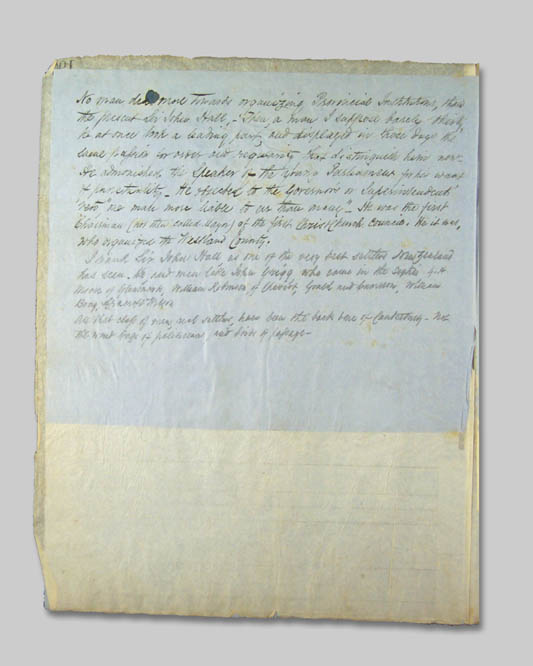 No man did more towards organizing Provincial Institutions, than
the present Sir John Hall, - Then a man I suppose barely thirty
he at once took a leading part, and displayed in those days the
same passion for order and regularity that distinguish him now -
He admonished the Speaker of the young Parliament for his want
of punctuality - He objected to the Governor's or Superintendents'
"veto" one made more liable to us than once" - It was the first
Chairman (not then called Mayor) of the first Christchurch Council. He it was,
who organized the Westland County.
I hand Sir John Hall as one of the very best settlers New Zealand
has seen. He and men like John Grigg who came in the
Moore of Glenmark, William Robinson of Cheviot, Gould and Cameron, William
Bong, Wilson
All that class of men, real settlers, have been the back bone of Canterbury - not
the wind bags of politicians, and birds of passage -